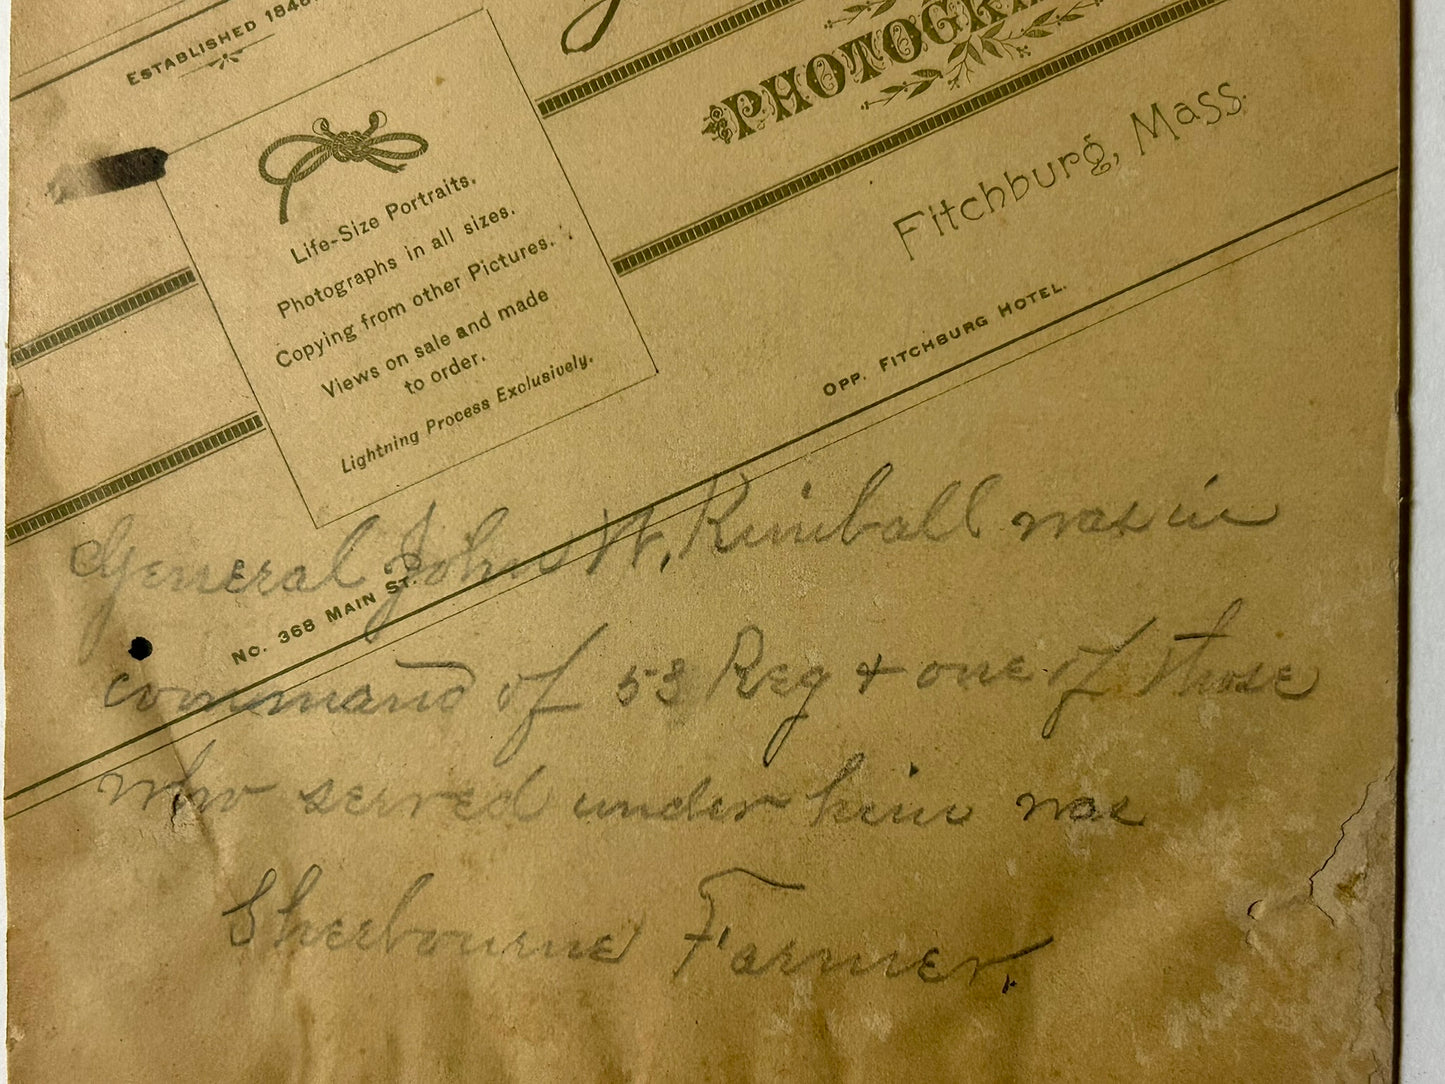 ESTABLISHED 1848
PHOTOGR
Fitchburg, Mass.
Life-Size Portraits.
Photographs in all sizes.
Copying from other Pictures.
Views on sale and made
to order.
Lightning Process Exclusively.
OPP. FITCHBURG HOTEL.
No. 368 MAIN ST.
General John W. Kimball was in
command of 53 Reg + one of those
who served under him was
Sherbourne Farmer.